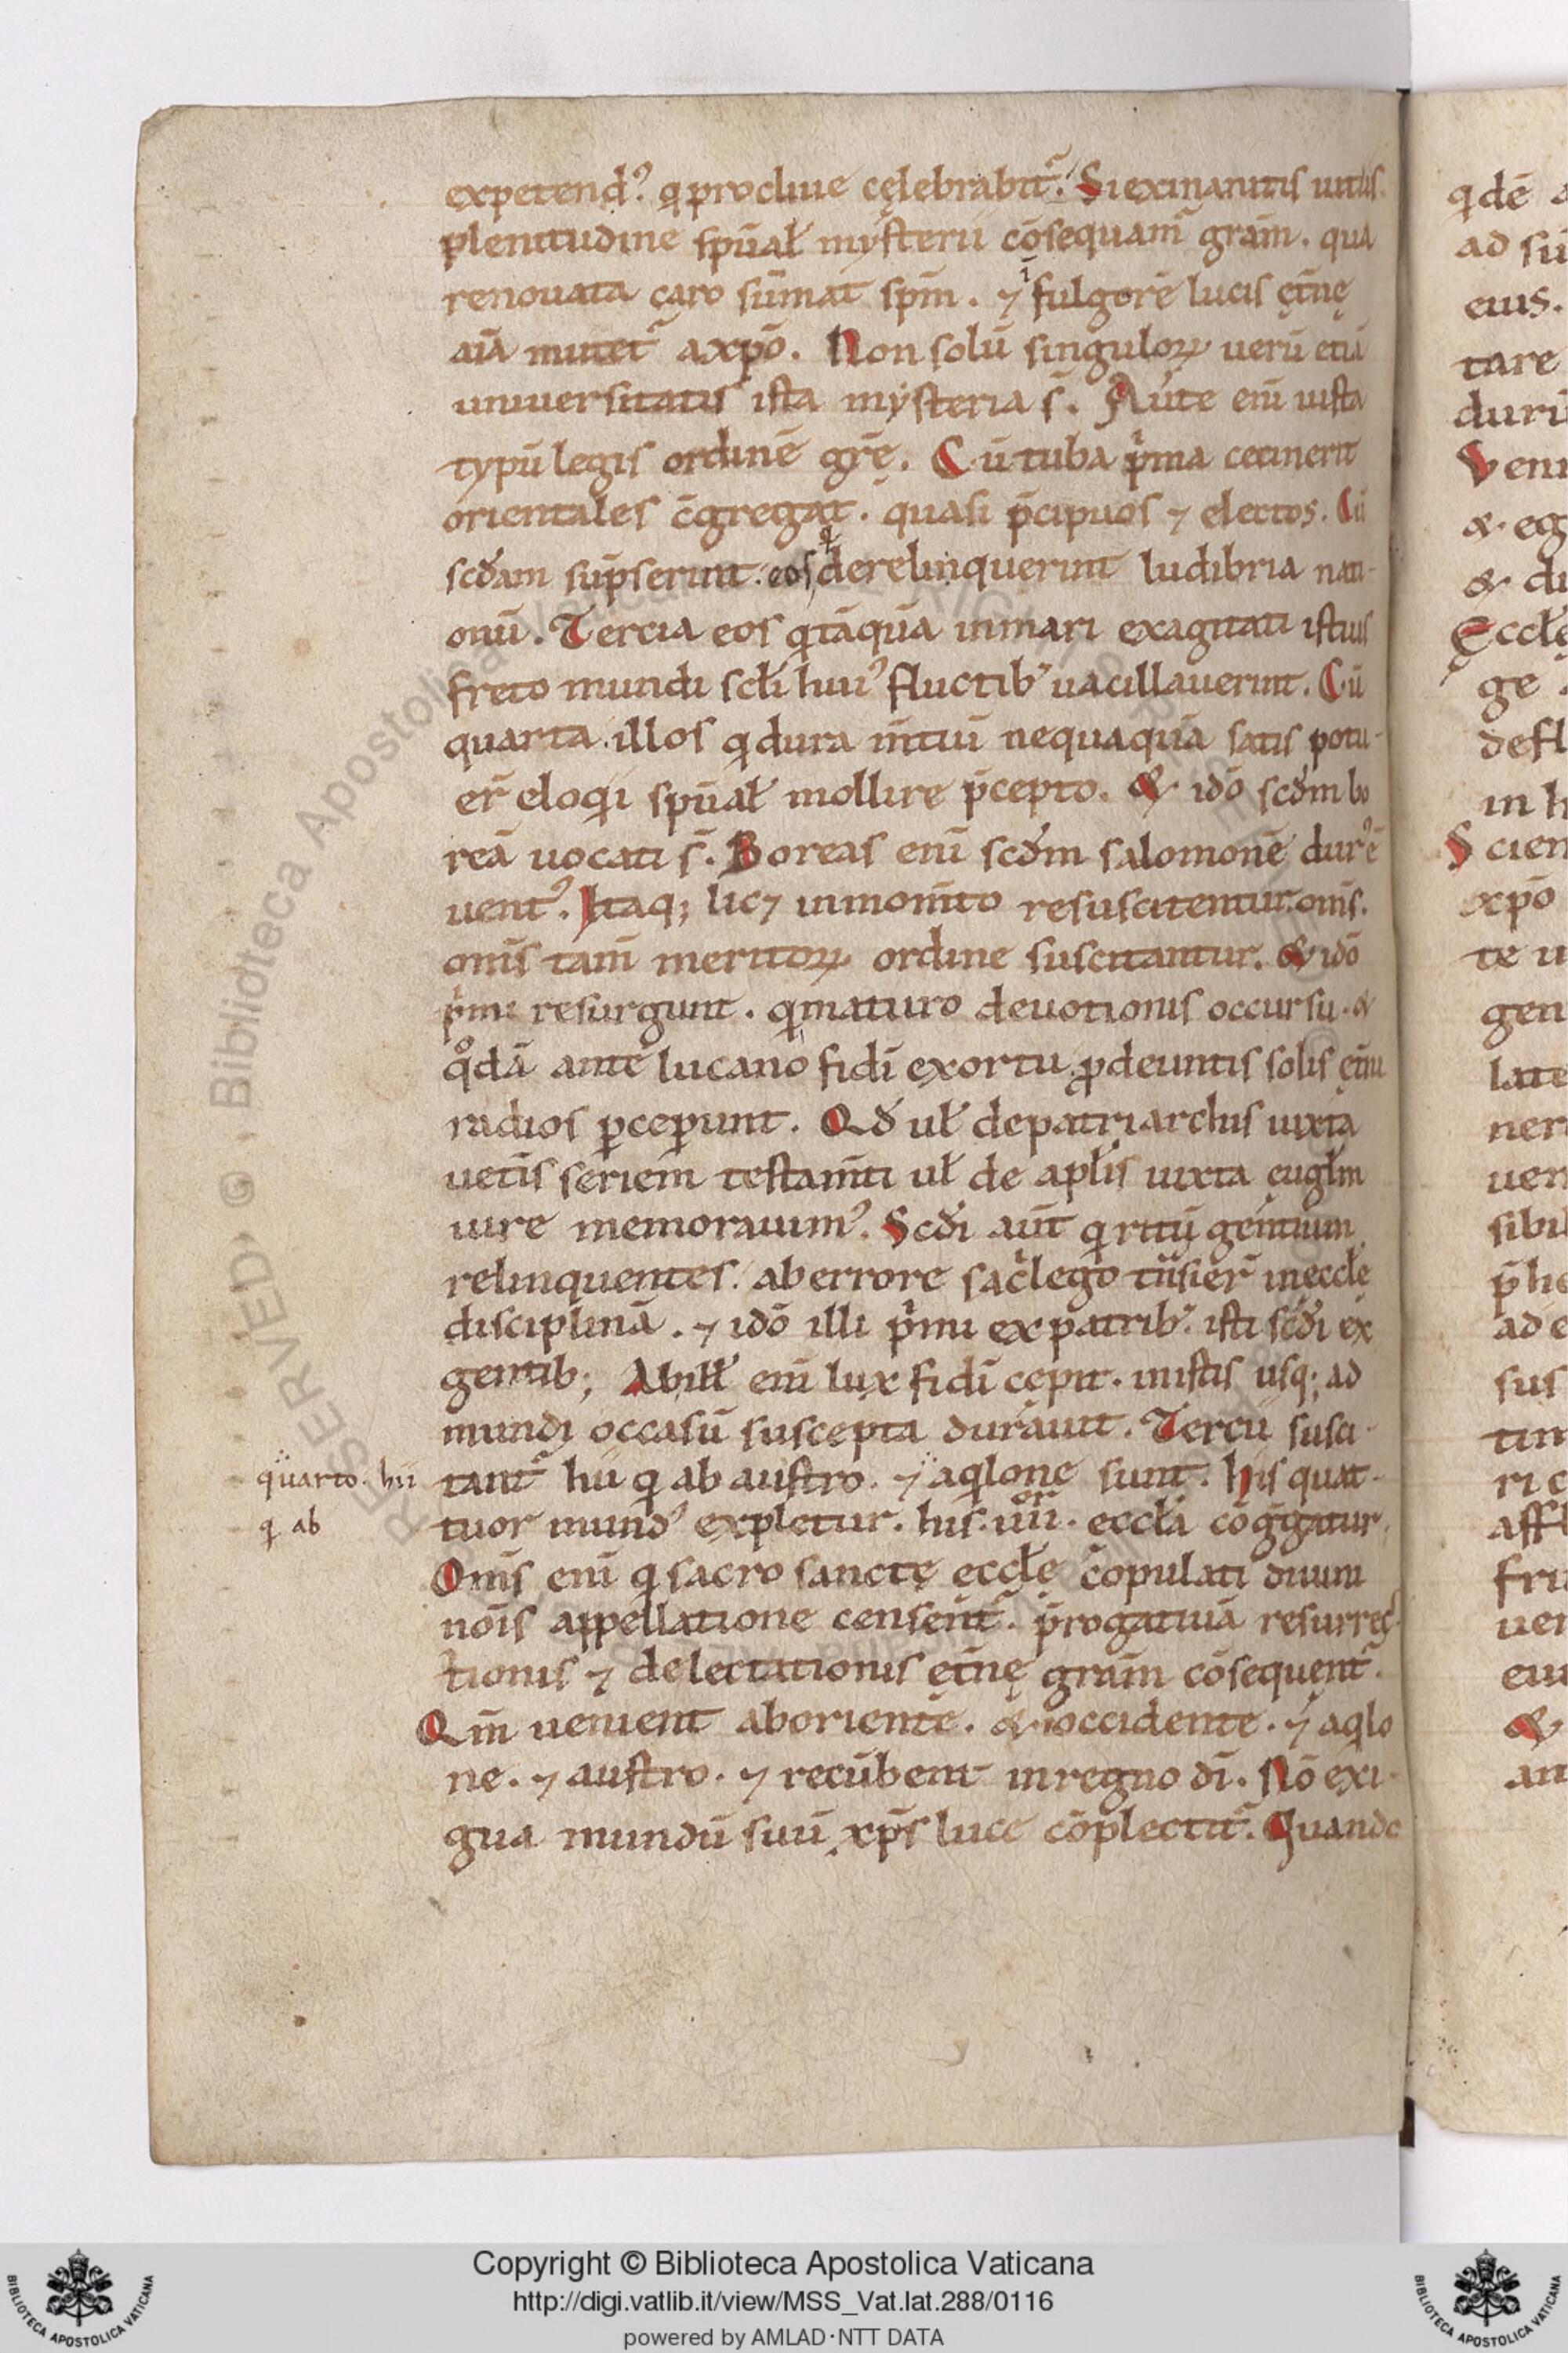 expetendꝰ. q̇ procliue cęlebrabit᷑. Si exinanitis uitiis
plenitudine sp̄ualł mysterii cōsequam᷑ gr̄am. qua
renouata caro sūmat sp̄m. ⁊ ī fulgorē lucis ęt̄nę
aīa mutet᷑ a xp̄o. Non solū singuloꝝ uerū etiā
uniuersitatis ista mysteria s̄. Aūte enī iuxta
typū legis ordinē gr̄ę. Cū tuba p̍ma cecinerit
orientales c̄gregat. quasi p̄cipuos ⁊ electos. Cū
scđam sūpserint. eos q̇ derelinquerint ludibria nati-
onū. Tercia eos q̇ tāquā in mari exagitati istius
freto mundi scłi huiꝰ fluctibꝰ uacillauerint. Cū
quarta. illos q̇ dura m̄tiū nequaquā satis potu-
er̄ eloq̇i sp̄uał mollire p̄cepto. & idō scđm bo
reā uocati s̄. Boreas enī scđm salomonē durꝰ ē
uentꝰ. Itaq; lic⁊ in mom̄to resuscitentur om̄s.
om̄s tam̄ meritoꝝ ordine suscitantur. & idō
p̍mi resurgunt. q̇ maturo deuotionis occursu. &
q̊dā ante lucano fidī exortu ꝓdeuntis solis ęt̄ni
radios ꝑceꝑunt. Qđ uł de patriarchis iuxta
uet̄is seriem testam̄ti uł de apłis iuxta euglm̄
iure memorauimꝰ. Scđi aūt q̇ ritū gentium
relinquentes. ab errore sac̍lego t̄nsier̄ in eccłę
disciplinā. ⁊ idō illi p̍mi ex patribꝰ. isti scđi ex
gentib; Ab illł enī lux fidī cępit. in istis usq; ad
mundi occasū suscepta durauit. Tercii susci-
tant᷑ hii q̇ ab austro. ⁊ aq̇lone sunt. His quat-
tuor mundꝰ expletur. his. iiii͞or. eccłā cōg̍gatur.
Om̄s enī q̇ sacro sanctę eccłę copulati diuini
nōis appellatione censent᷑. p̄rogatiuā resurrec-
tionis ⁊ delectationis ęt̄nę gr̄am cōsequent᷑.
Qm̄ uenient ab oriente. & occidente. ⁊ aq̇lo
ne. ⁊ austro. ⁊ recūbent in regno dī. Nō exi-
gua mundū suū xp̄s luce cōplectit᷑. Quando
quarto. hii
q̇ ab
q̇dē
ad sū
eius.
tare
durū
Veni
& eg
& di
Eccłę
ge
defl
in h
Scien
xp̄o
te u
gen
late
ner
uen
sibil
p̄he
ad e
sus
tim
ri c
affl
fru
uer
eiu
&
an
RESERVED. © Biblioteca Apostolica Vaticana
Copyright © Biblioteca Apostolica Vaticana
http://digi.vatlib.it/view/MSS_Vat.lat.288/0116
powered by AMLAD·NTT DATA
BIBLIOTECA APOSTOLICA VATICANA
BIBLIOTECA APOSTOLICA VATICANA